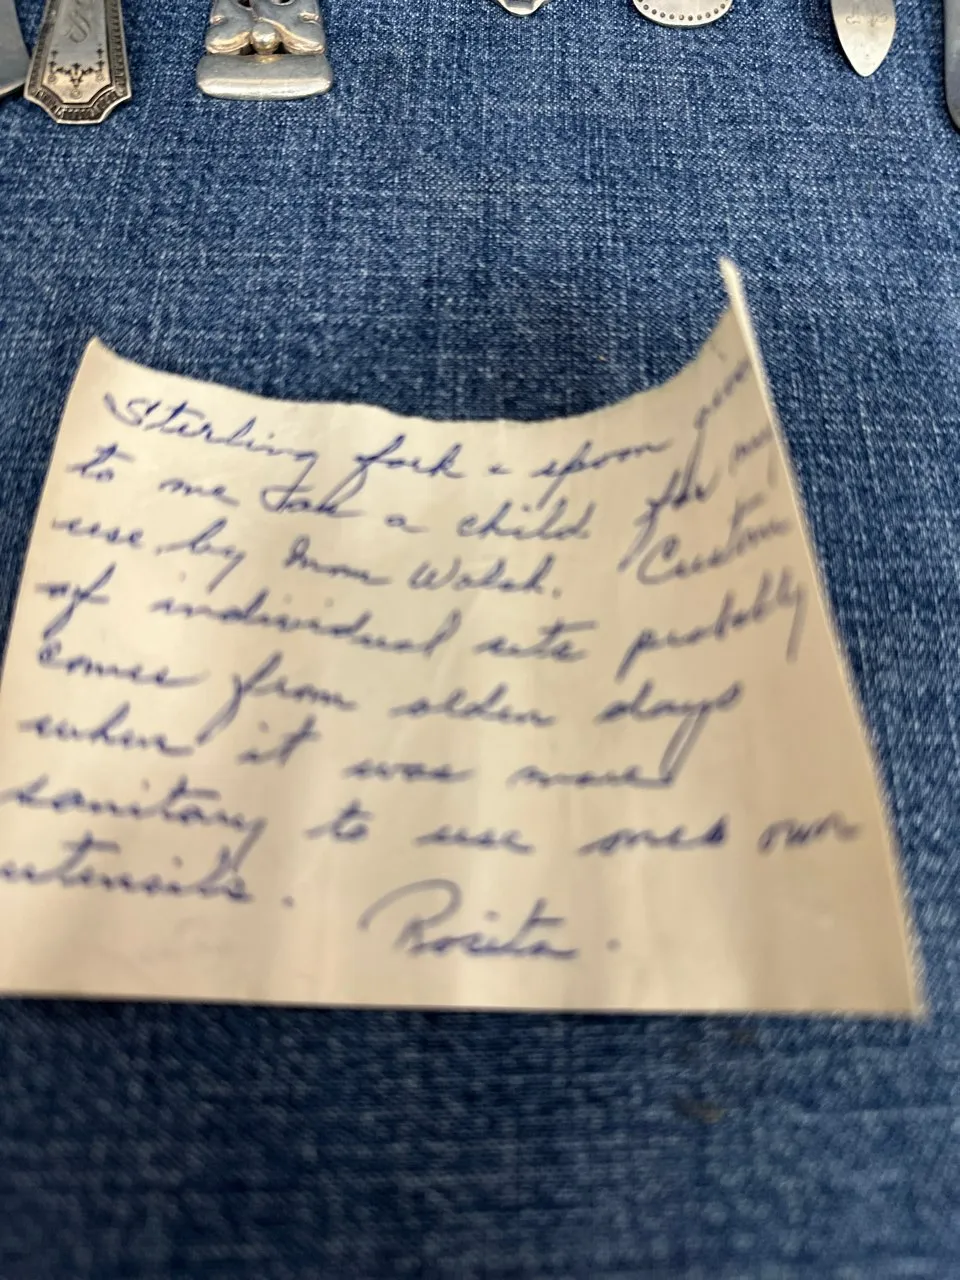 Sterling fork & spoon given
to me Tak a child. for my
use by Mom Walsh. Custom
of individual sets probably
comes from olden days
when it was more
sanitary to use ones own
utensils. Rosita.